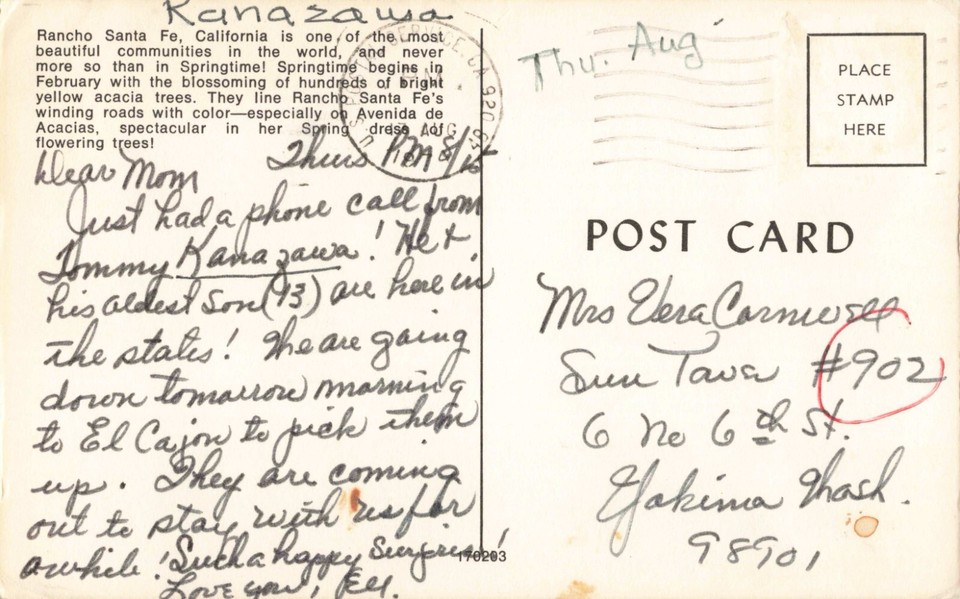 Kanazawa
Rancho Santa Fe, California is one of the most
beautiful communities in the world, and never
more so than in Springtime! Springtime begins in
February with the blossoming of hundreds of bright
yellow acacia trees. They line Rancho Santa Fe's
winding roads with color—especially on Avenida de
Acacias, spectacular in her Spring dress of
flowering trees!
Thurs PM 8/15
Dear Mom
Just had a phone call from
Tommy Kanazawa! He +
his oldest son (13) are here in
the states! We are going
down tomorrow morning
to El Cajon to pick them
up. They are coming
out to stay with us for
awhile! Such a happy surprise!
Love you,
170203
Thu. Aug
U.S. POSTAL SERVICE, CA 920
AUG
PLACE
STAMP
HERE
POST CARD
Mrs Vera Cornwell
Sun Tower #902
6 No 6th St.
Yakima Wash.
98901